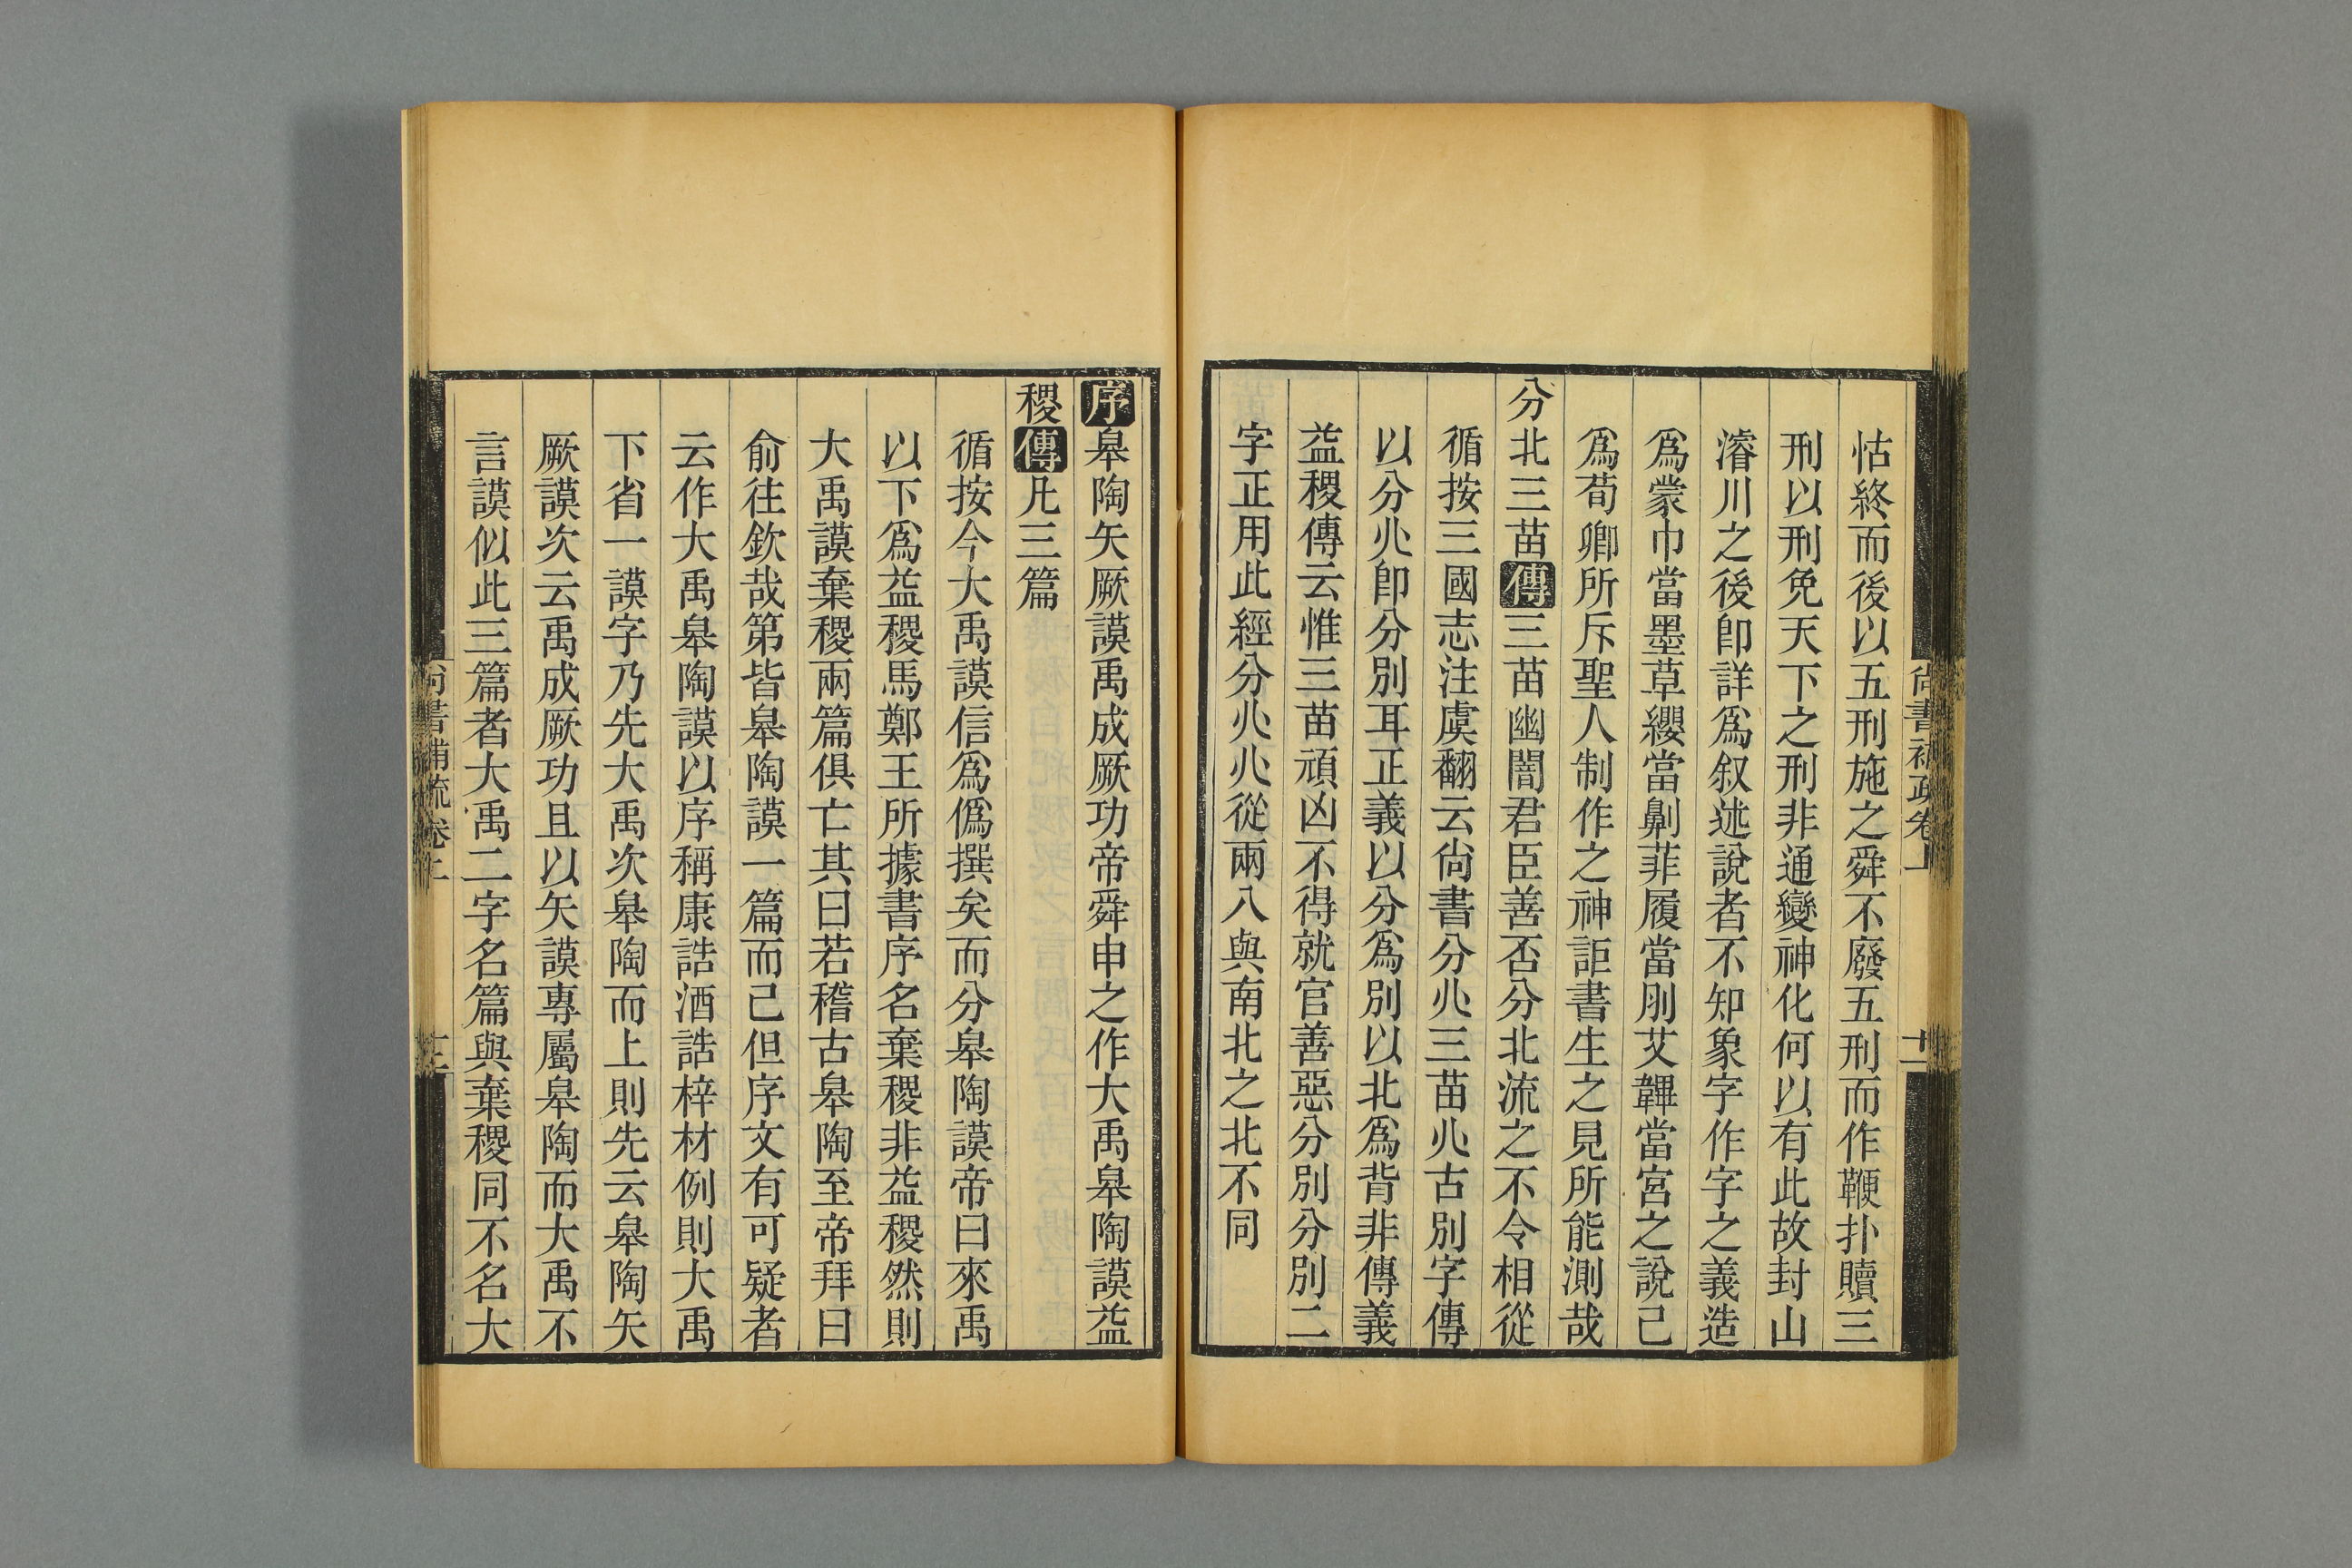 怙終而後以五刑施之舜不廢五刑而作鞭扑贖三
刑以刑免天下之刑非通變神化何以有此故封山
濬川之後卽詳爲叙述說者不知象字作字之義造
爲蒙巾當墨草纓當劓菲履當刖艾韠當宮之說己
爲荀卿所斥聖人制作之神詎書生之見所能測哉
分北三苗傳三苗幽闇君臣善否分北流之不令相從
循按三國志注虞翻云尙書分𠔁三苗𠔁古別字傳
以分𠔁卽分別耳正義以分爲別以北爲背非傳義
益稷傳云惟三苗頑凶不得就官善惡分別分別二
字正用此經分𠔁𠔁從兩八與南北之北不同
尙書補疏卷上
十一
序皋陶矢厥謨禹成厥功帝舜申之作大禹皋陶謨益
稷傳凡三篇
循按今大禹謨信爲僞撰矣而分皋陶謨帝曰來禹
以下爲益稷馬鄭王所據書序名棄稷非益稷然則
大禹謨棄稷兩篇俱亡其曰若稽古皋陶至帝拜曰
俞往欽哉第皆皋陶謨一篇而己但序文有可疑者
云作大禹皋陶謨以序稱康誥酒誥梓材例則大禹
下省一謨字乃先大禹次皋陶而上則先云皋陶矢
厥謨次云禹成厥功且以矢謨專屬皋陶而大禹不
言謨似此三篇者大禹二字名篇與棄稷同不名大
尙書補疏卷上